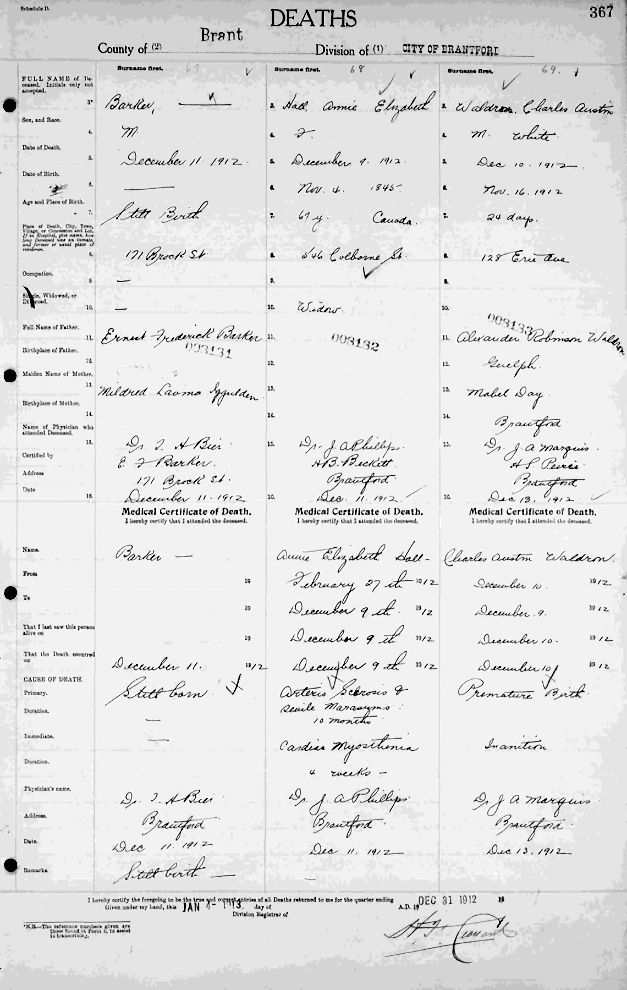 Schedule D.
DEATHS
367
County of (2) Brant Division of (1) CITY OF BRANTFORD
Surname first. 67
Surname first. 68
Surname first. 69.
FULL NAME of Deceased. Initials only not accepted.
3* Barker, —
3. Hall Annie Elizabeth
3. Waldron, Charles Austin
Sex, and Race.
4. M.
4. F.
4. M. White
Date of Death.
5. December 11. 1912.
5. December 9. 1912.
5. Dec 10. 1912.
Date of Birth.
6. —
6. Nov. 4. 1845
6. Nov. 16. 1912
Age and Place of Birth.
7. Still Birth
7. 67 y. Canada.
7. 24 days.
Place of Death, City, Town, Village, or Concession and Lot. If in Hospital, give name, how long Deceased was an inmate, and former or usual place of residence.
8. 171 Brock St
8. 546 Colborne St.
8. 128 Erie Ave
Occupation.
9. —
9.
9.
Single, Widowed, or Divorced.
10. —
10. Widow
10.
Full Name of Father.
11. Ernest Frederick Barker
003131
11. 003132
11. Alexander Robinson Waldron
003133
Birthplace of Father.
12.
12.
12. Guelph.
Maiden Name of Mother.
13. Mildred Izzulden
13.
13. Mabel Day.
Birthplace of Mother.
14.
14.
14. Brantford
Name of Physician who attended Deceased.
15. Dr. T. A Bier
15. Dr. J. A Phillips.
15. Dr. J. A Marquis.
Certified by
E. F Barker.
H. B. Beckett.
H S Peirce
Address
171 Brock St.
Brantford
Brantford
Date
16. December 11. 1912
16. Dec. 11. 1912
16. Dec 13. 1912
Medical Certificate of Death.
Medical Certificate of Death.
Medical Certificate of Death.
I hereby certify that I attended the deceased.
I hereby certify that I attended the deceased.
I hereby certify that I attended the deceased.
Name.
Barker —
Annie Elizabeth Hall-
Charles Austin Waldron.
From
19
February 27 th 1912
December 10. 1912
To
19
December 9 th 1912
December. 9. 1912
That I last saw this person alive on
19
December 9 th 1912
December 10. 1912
That the Death occurred on
December 11. 1912
December 9 th 1912
December 10 1912
CAUSE OF DEATH.
Primary.
Still born
Arterio Sclerosis &
Senile Marasmus
Premature Birth
Duration.
—
10 months
Immediate.
—
Cardiac Myosthenia
Inanition
Duration.
4 weeks —
Physician's name.
Dr. T. A Bier
Dr J. A Phillips
Dr J A Marquis
Address.
Brantford
Brantford
Brantford
Date.
Dec 11. 1912
Dec 11. 1912
Dec 13. 1912
Remarks.
Still birth —
I hereby certify the foregoing to be the true and correct entries of all Deaths returned to me for the quarter ending DEC 31 1912 19
Given under my hand, this JAN 4- 1913 day of A.D. 19
Division Registrar of
*N.B.—The reference numbers given are those found in Form 6, to assist in transcribing.